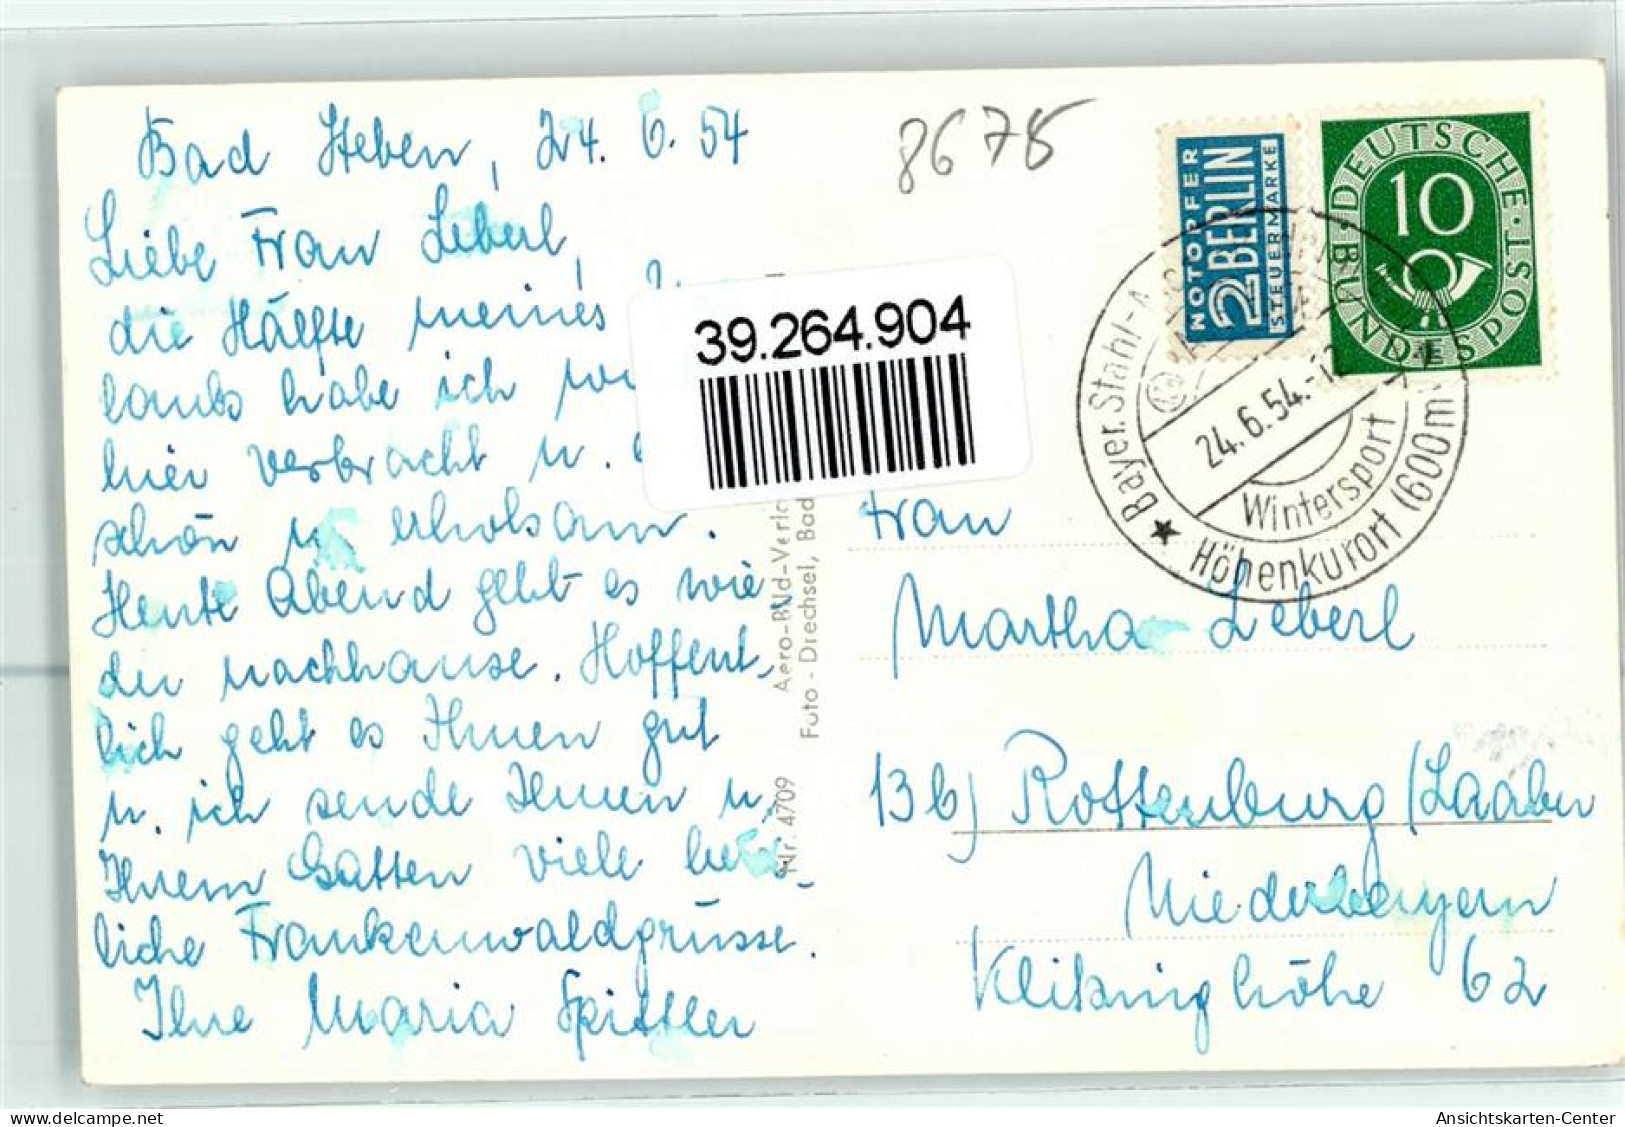 Bad Steben, 24. 6. 54
Liebe Frau Leberl,
die Hälfte meines
laubs habe ich
hier verbracht u.
schön u. erholsam.
Heute Abend geht es wie
der nachhause. Hoffent-
lich geht es Ihnen gut
u. ich sende Ihnen u.
Ihrem Gatten viele herz-
liche Frankenwaldgrüsse.
Ihre Maria Spittler
8678
NOTOPFER
2 BERLIN
STEUERMARKE
DEUTSCHE · BUNDESPOST
10
Bayer. Stahl-
24.6.54.-12
Wintersport
Höhenkurort (600m)
39.264.904
Nr. 4709 Aero-Bild-Verlag
Foto-Drechsel, Bad
Frau
Martha Leberl
13b) Rottenburg/Laaber
Niederbayern
62
Ansichtskarten-Center